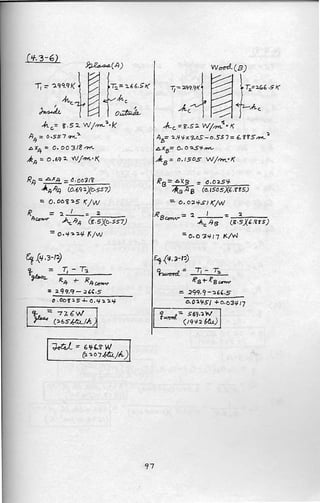 (4.3-6)
Glass (A)
T₁ = 299.9K
T₂ = 266.5K
h_c
h_c
Inside
Outside
h_c = 8.52 W/m²·K
A_A = 0.557 m²
Δx_A = 0.00318 m
k_A = 0.692 W/m·K
R_A = Δx_A / (k_A A_A) = 0.00318 / (0.692)(0.557)
= 0.00825 K/W
R_conv = 2 · 1 / (h_c A_A) = 2 / (8.5)(0.557)
= 0.4224 K/W
Eq. (4.3-12)
q_glass = (T₁ - T₂) / (R_A + R_A conv)
= (299.9 - 266.5) / (0.00825 + 0.4224)
q_glass = 77.6 W
(265 btu/h)
Wood (B)
T₁ = 299.9K
T₂ = 266.5K
h_c
h_c
h_c = 8.52 W/m²·K
A_B = 2.44×3.05 - 0.557 = 6.885 m²
Δx_B = 0.0254 m
k_B = 0.1505 W/m·K
R_B = Δx_B / (k_B A_B) = 0.0254 / (0.1505)(6.885)
= 0.02451 K/W
R_B conv = 2 · 1 / (h_c A_B) = 2 / (8.5)(6.885)
= 0.03417 K/W
Eq. (4.3-12)
q_wood = (T₁ - T₂) / (R_B + R_B conv)
= (299.9 - 266.5) / (0.02451 + 0.03417)
q_wood = 569.2W
(1942 btu)
Total = 646.8 W
(2207 btu/h)
97